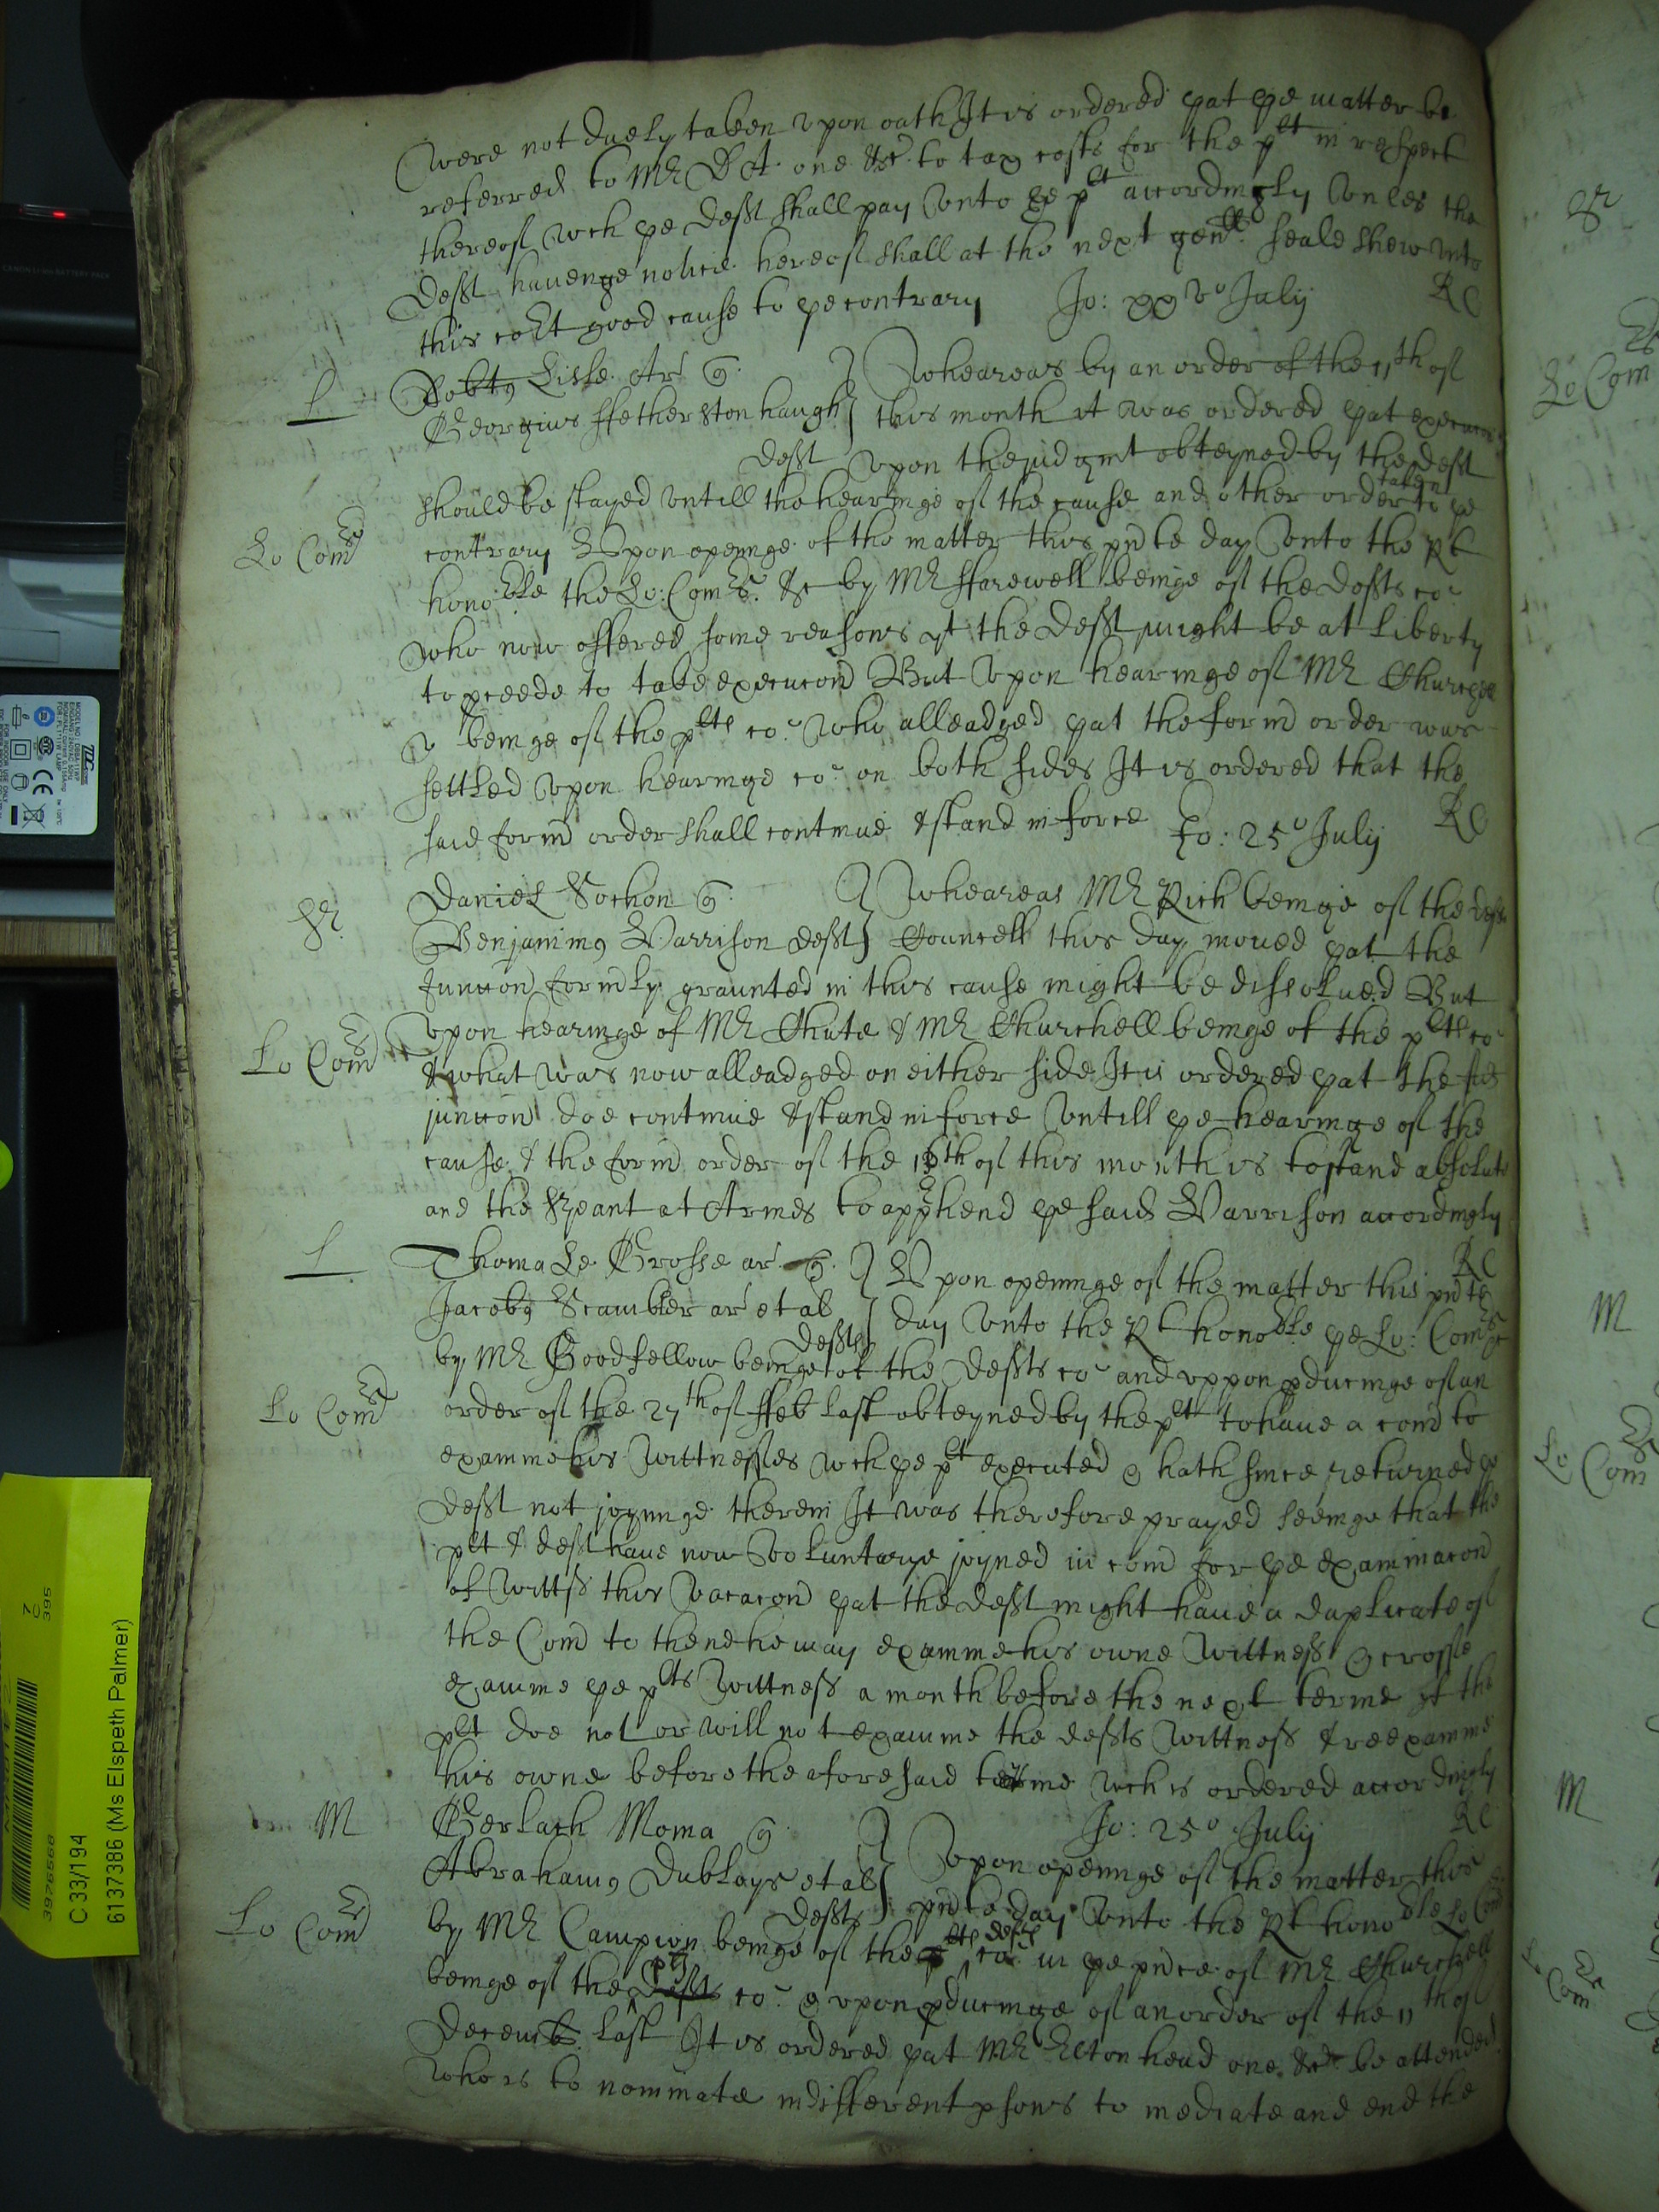 were not duely taken vpon oath It is ordered yat ye matter be
referred to Mr D A. one &c. to tax costs for the plt in respect
thereof wch ye Deft shall pay vnto ye plt accordingly vnles the
Deft hauenge notice hereof shall at the next genll seale shew vnto
this cort good cause to ye contrary Jo: xxvo July RC
L Robtus Lisle Ar q. } Wheareas by an order of the 11th of
Georgius ffetherstonhaugh } this month it was ordered yat execucon
Deft vpon the judgmt obteyned by the Deft
should be stayed vntill the hearinge of the cause and other order taken to ye
Lo Comrs contrary Vpon openinge of the matter this pnte day vnto the Rt
honoble the Lo: Comrs. &c by Mr ffarewell beinge of the Defts co
who now offered some reasons yt the Deft might be at liberty
to pceede to take execucon But vpon hearinge of Mr Churchell
beinge of the plts co. who alleadged yat the form order was
settled vpon hearinge co. on both sides It is ordered that the
said form order shall continue & stand in force Jo: 25o July RC
Sr Daniel Sochon q. } Wheareas Mr Rich beinge of the defts
Benjaminus Warrison Deft } Councell this day moued yat the
Junccon formly graunted in this cause might be dissolued But
Lo Comrs vpon hearinge of Mr Chute & Mr Churchell beinge of the plts co
& what was now alleadged on either side It is ordered yat the sd
junccon doe continue & stand in force vntill ye hearinge of the
cause & the form order of the th of this month is to stand absolute
and the Srjeant at Armes to apprhend ye said Warrison accordingly
L Thoma Le Grosse ar q. } Vpon openinge of the matter this pnte RC
Jacobus Scambler ar et al } day vnto the Rt honoble ye Lo: Comrs &c
Defts
by Mr Goodfellow beinge of the Defts co and vppon pducinge of an
Lo Comrs order of the 27th of ffeb last obteyned by the plt to haue a com to
examine his wittnesses wch ye plt executed & hath since returned ye
Deft not joyninge therein It was therefore prayed seeinge that the
plt & deft haue now voluntarye joyned in com for ye examinacon
of witts this vacacon yat the Deft might haue a duplicate of
the Com to thend he may examine his owne wittness & crosse
examine ye plts wittness a month before the next terme yf the
plt doe not or will not examine the defts wittness & reexamine
his owne before the aforesaid terme wch is ordered accordingly
M Gerlach Moma q. } Jo: 25o July RC
Abrahamus Dublays et al } Vpon openinge of the matter this
Lo Comrs Defts } pnte day vnto the Rt honoble Lo Comrs
by Mr Campion beinge of the defts co in ye pnce of Mr Churchell
beinge of the plts Defts co. & vpon pducinge of an order of the 11th of
Decemb. last It is ordered yat Mr Eltonhead one &c be attended
who is to nominate indifferent psons to mediate and end the
Lo Com
M
Lo Com
M
Lo Com
C 33/194
6137386 (Ms Elspeth Palmer)
3976568
7
C
395